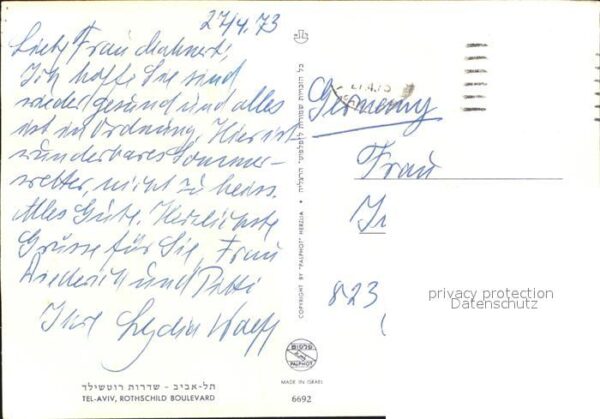 27/4.73
Liebe Frau Mahnert!
Ich hoffe Sie sind
wieder gesund und alles
ist in Ordnung. Hier ist
wunderbares Sommer-
wetter, nicht zu heiss.
Alles Gute. Herzlichste
Grüsse für Sie, Frau
Diederich und Putti
Ihre Lydia
תל-אביב - שדרות רוטשילד
TEL-AVIV, ROTHSCHILD BOULEVARD
COPYRIGHT BY "PALPHOT" HERZLIA
כל הזכויות שמורות ל"פלפוט" הרצליה
פלפוט
PALPHOT
MADE IN ISRAEL
6692
27.4.73
Germany
Frau
823
privacy protection
Datenschutz